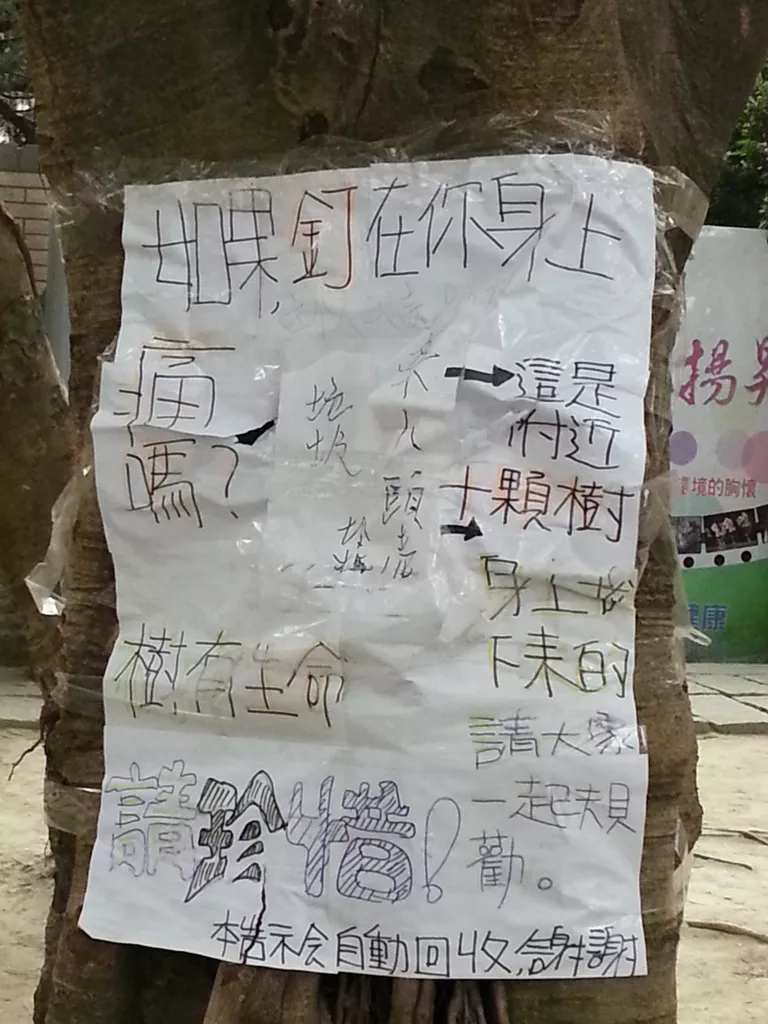 如果,釘在你身上
痛
嗎?
垃
圾
垃
這是
附近
十顆樹
身上拔
下來的
請大家
一起規
勸。
樹有生命
請珍惜!
本告示会自動回收,謝謝
揚
環境的胸懷
健康